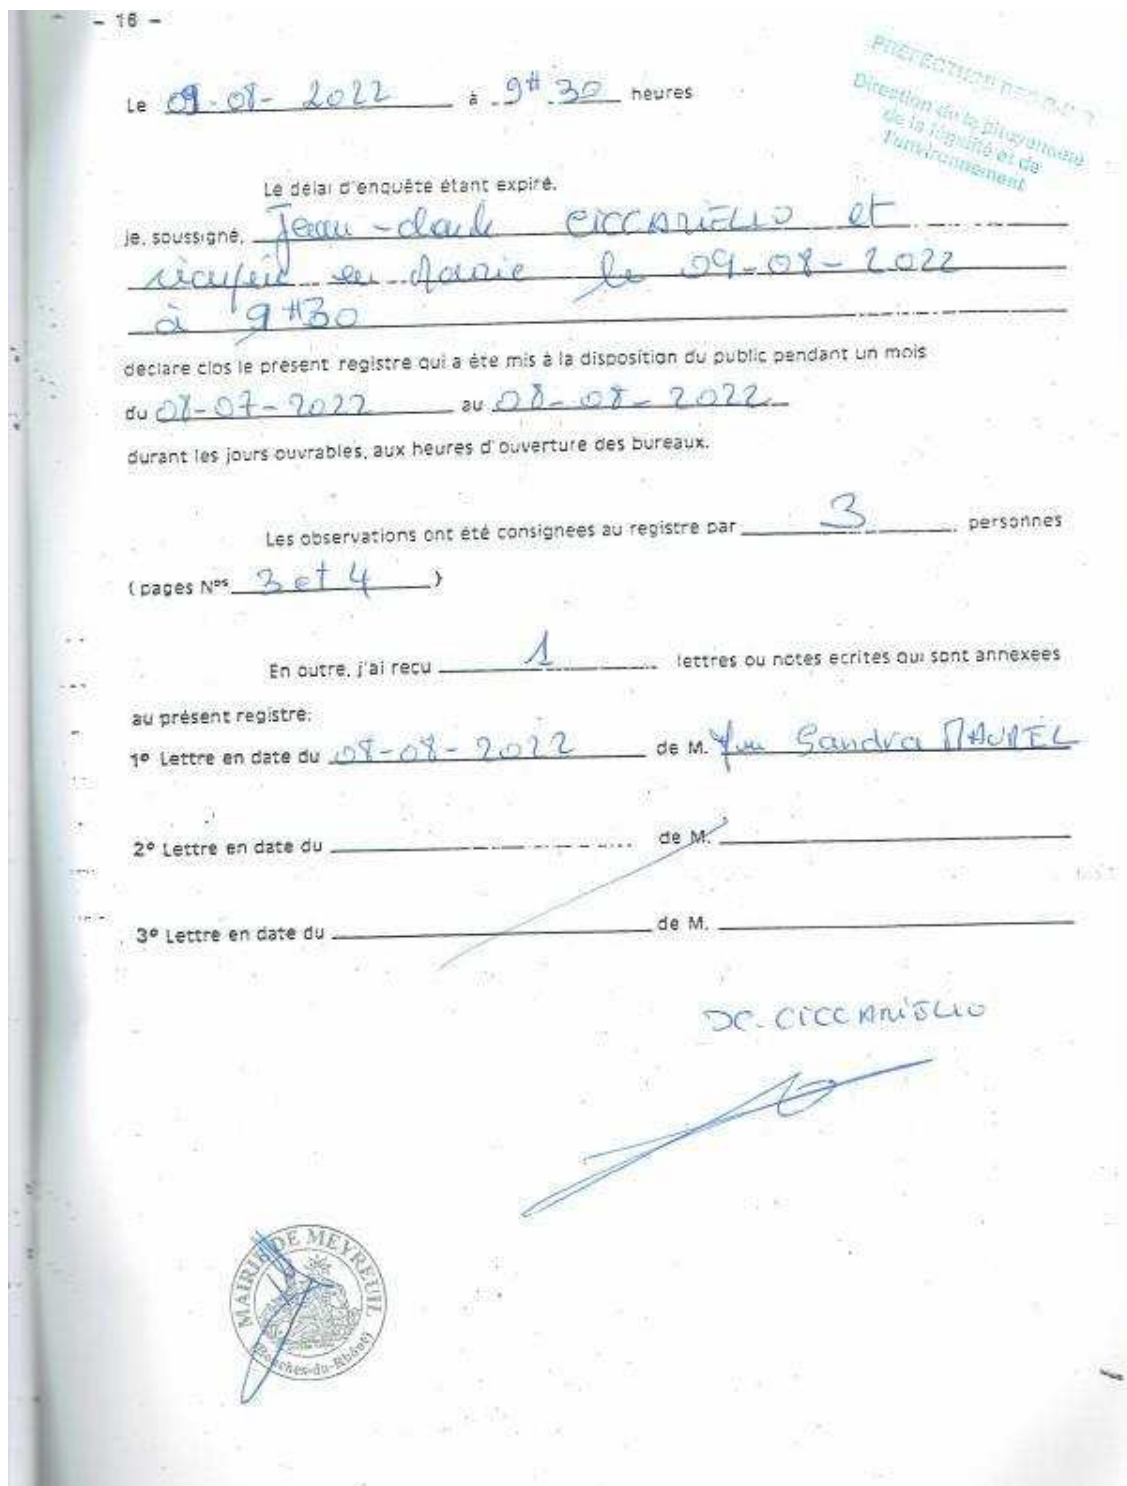 - 16 -
Le 09-08-2022 à 9H30 heures
PREFECTURE DES B-D-R
Direction de la citoyenneté
de la légalité et de
l'environnement
Le délai d'enquête étant expiré,
je, soussigné, Jean-claude CICCARIELLO et
récupéré en Mairie le 09-08-2022
à 9H30
déclare clos le présent registre qui a été mis à la disposition du public pendant un mois
du 08-07-2022 au 08-08-2022
durant les jours ouvrables, aux heures d'ouverture des bureaux.
Les observations ont été consignees au registre par 3 personnes
(pages Nos 3 et 4)
En outre, j'ai recu 1 lettres ou notes ecrites qui sont annexees
au présent registre:
1º Lettre en date du 08-08-2022 de M. Sandra MAUREL
2º Lettre en date du de M.
3º Lettre en date du de M.
JC. CICCARIELLO
MAIRIE DE MEYREUIL
(Bouches-du-Rhône)